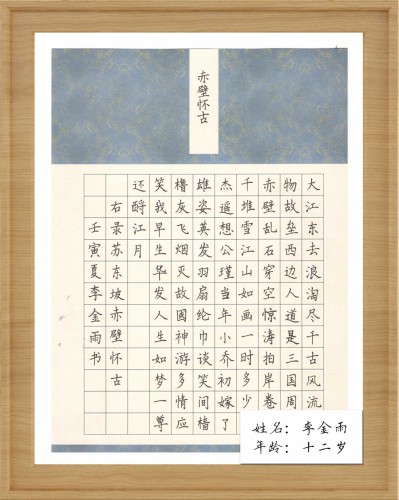 赤壁怀古
大江东去浪淘尽千古风流
物故垒西边人道是三国周
赤壁乱石穿空惊涛拍岸卷
千堆雪江山如画一时多少
杰遥想公瑾当年小乔初嫁了
雄姿英发羽扇纶巾谈笑间樯
橹灰飞烟灭故國神游多情应
笑我早生华发人生如梦一尊
还酹江月
右录苏东坡赤壁怀古
壬寅夏李金雨书
姓名：李金雨
年龄：十二岁